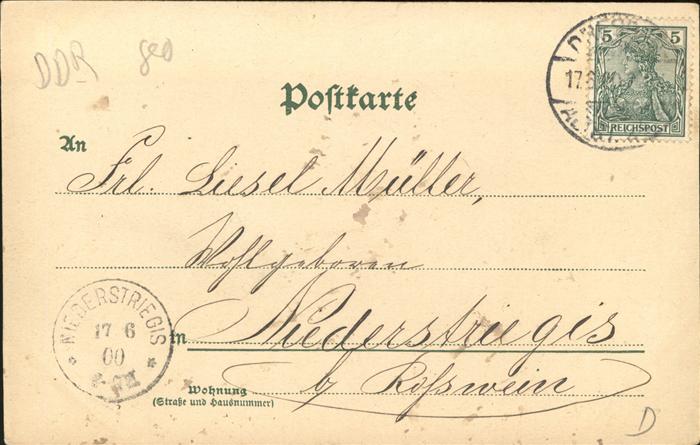 DDR geo
5 5
17.6.
REICHSPOST
Postkarte
An
Frl. Liesel Müller,
Wohlgeboren
NIEDERSTRIEGIS
17 6
00
in Niederstriegis
b/ Roßwein
Wohnung
(Straße und Hausnummer)
D